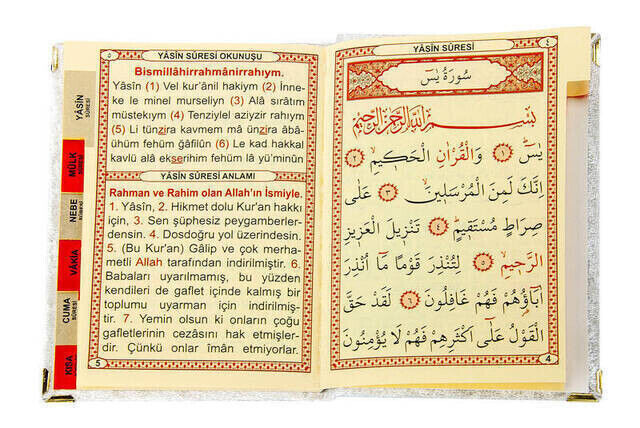 YÂSİN SÛRESİ
٤
سُورَةُ يٰسۤ
بِسْمِ اللّٰهِ الرَّحْمٰنِ الرَّحِيمِ
يٰسۤ ﴿١﴾ وَالْقُرْاٰنِ الْحَكِيمِۙ ﴿٢﴾
اِنَّكَ لَمِنَ الْمُرْسَلِينَۙ ﴿٣﴾ عَلٰى
صِرَاطٍ مُسْتَقِيمٍۜ ﴿٤﴾ تَنْزِيلَ الْعَزِيزِ
الرَّحِيمِۙ ﴿٥﴾ لِتُنْذِرَ قَوْمًا مَٓا اُنْذِرَ
اٰبَٓاؤُ۬هُمْ فَهُمْ غَافِلُونَ ﴿٦﴾ لَقَدْ حَقَّ
الْقَوْلُ عَلٰٓى اَكْثَرِهِمْ فَهُمْ لَا يُؤْمِنُونَ
4
٥
YÂSİN SÛRESİ OKUNUŞU
Bismillâhirrahmânirrahıym.
Yâsîn (1) Vel kur'ânil hakiym (2) İnne-
ke le minel murseliyn (3) Alâ sırâtım
müstekıym (4) Tenziylel aziyzir rahıym
(5) Li tünzira kavmem mâ ünzira âbâ-
ühüm fehüm ğâfilûn (6) Le kad hakkal
kavlü alâ ekserihim fehüm lâ yü'minûn
YÂSİN SÛRESİ ANLAMI
Rahman ve Rahim olan Allah'ın İsmiyle.
1. Yâsîn, 2. Hikmet dolu Kur'an hakkı
için, 3. Sen şüphesiz peygamberler-
densin. 4. Dosdoğru yol üzerindesin.
5. (Bu Kur'an) Gâlip ve çok merha-
metli Allah tarafından indirilmiştir. 6.
Babaları uyarılmamış, bu yüzden
kendileri de gaflet içinde kalmış bir
toplumu uyarman için indirilmiş-
tir. 7. Yemin olsun ki onların çoğu
gafletlerinin cezâsını hak etmişler-
dir. Çünkü onlar îmân etmiyorlar.
5
YÂSİN
SÛRESİ
MÜLK
SÛRESİ
NEBE
SÛRESİ
VÂKIA
CUMA
SÛRESİ
KISA